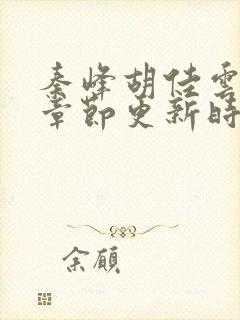 秦峰胡佳雲
章節更新時
余願